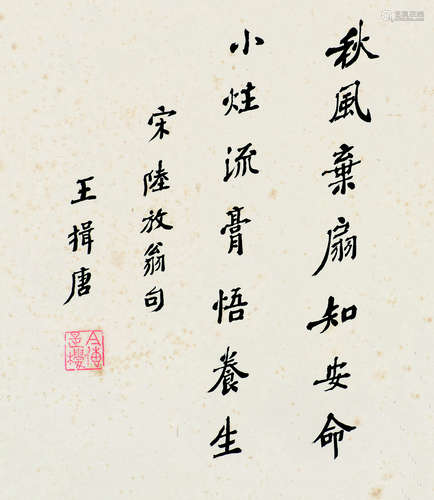 秋風棄扇知安命
小炷流膏悟養生
宋陸放翁句
王揖唐
今傳是樓